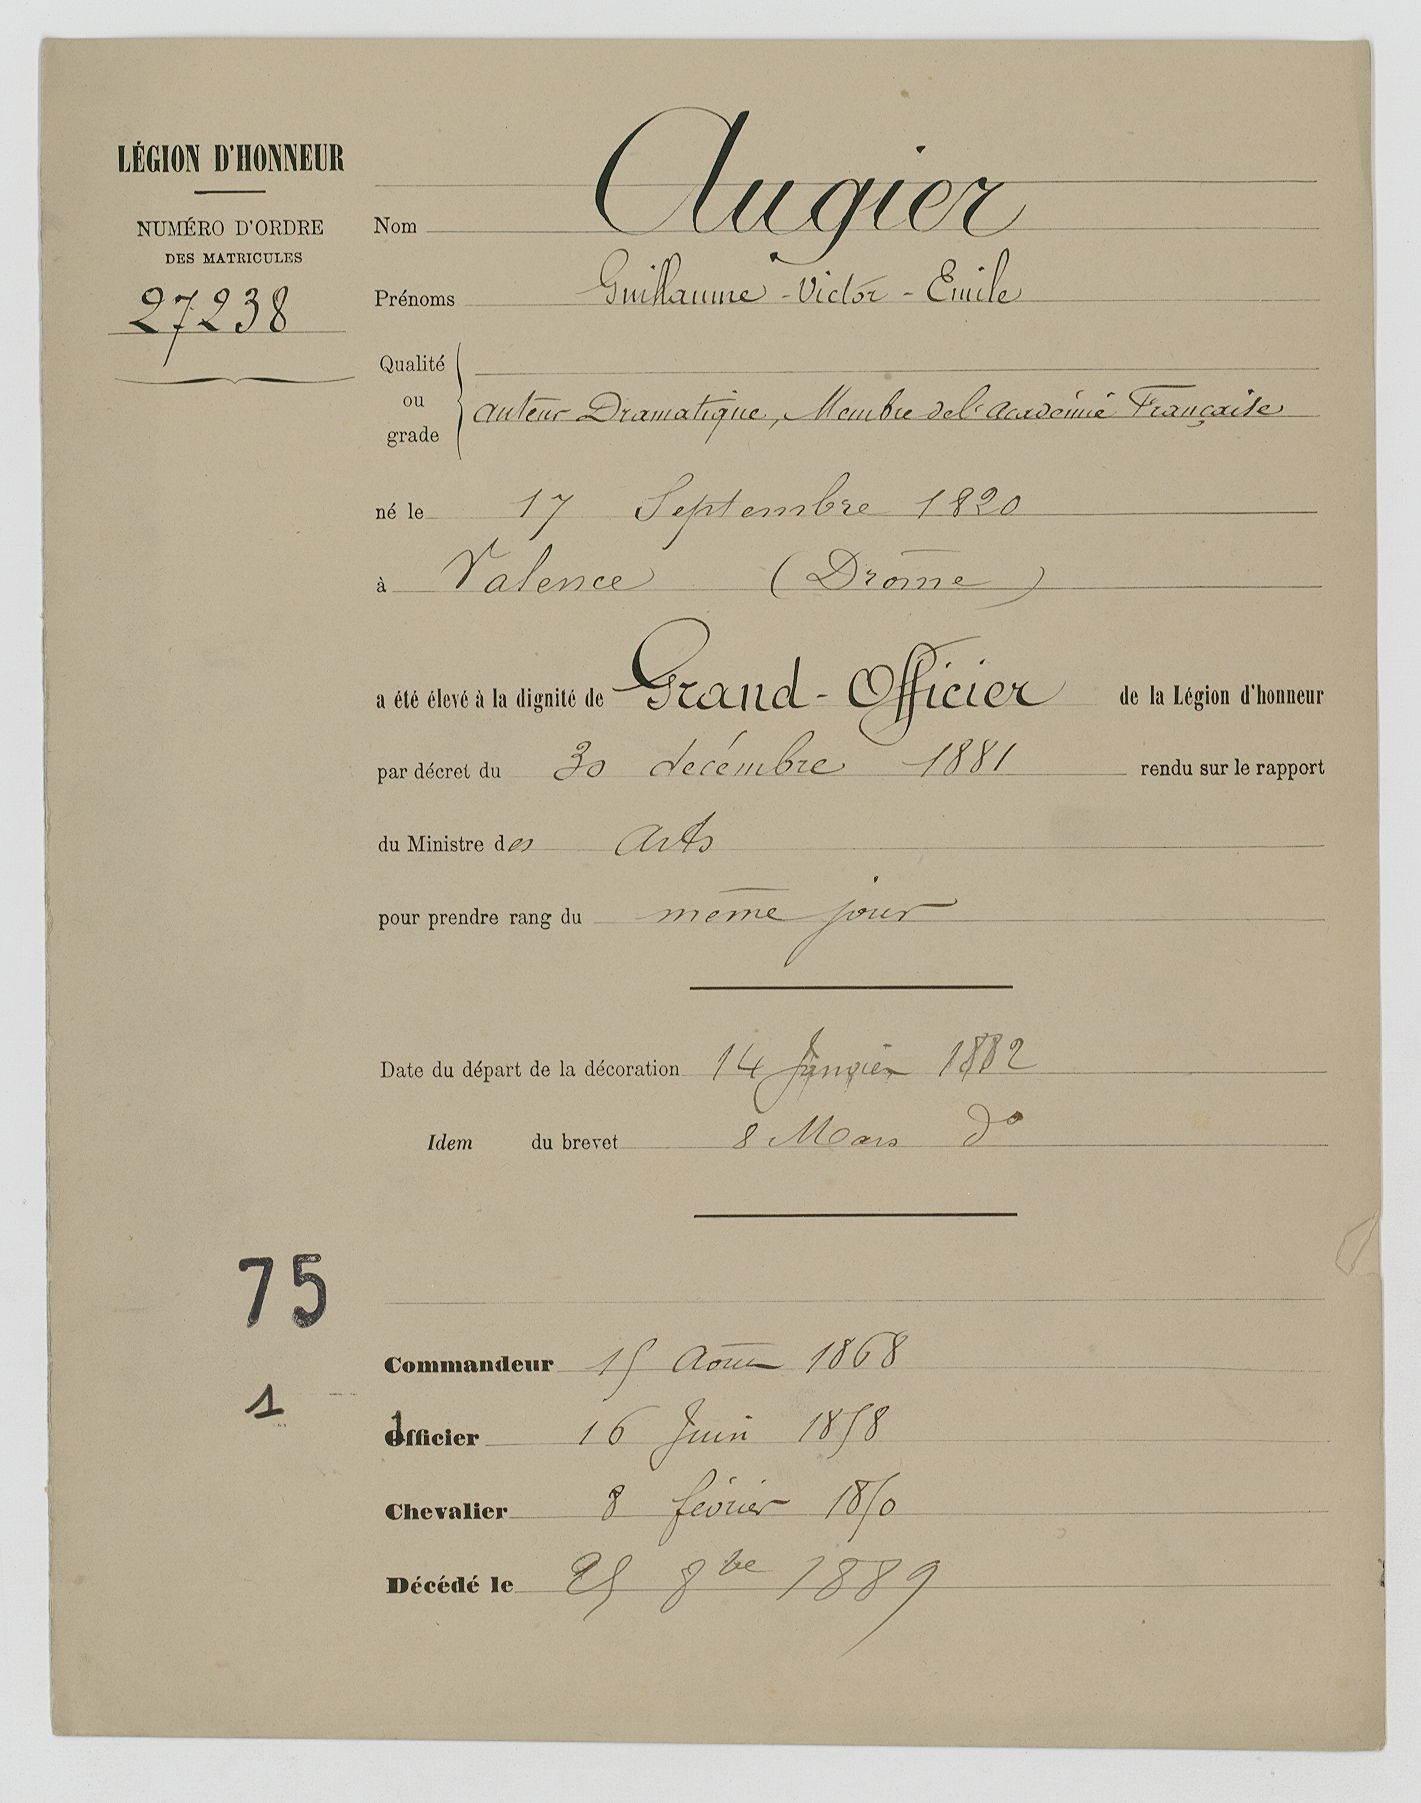 LÉGION D'HONNEUR
NUMÉRO D'ORDRE
DES MATRICULES
27238
Nom Augier
Prénoms Guillaume - Victor - Emile
Qualité
ou
grade
auteur Dramatique, Membre de l'académie Française
né le 17 Septembre 1820
à Valence (Drôme)
a été élevé à la dignité de Grand-Officier de la Légion d'honneur
par décret du 30 décembre 1881 rendu sur le rapport
du Ministre des arts
pour prendre rang du même jour
Date du départ de la décoration 14 Janvier 1882
Idem du brevet 8 Mars do
75
Commandeur 15 Août 1868
1
1
Officier 16 Juin 1858
Chevalier 8 février 1850
Décédé le 25 8bre 1889